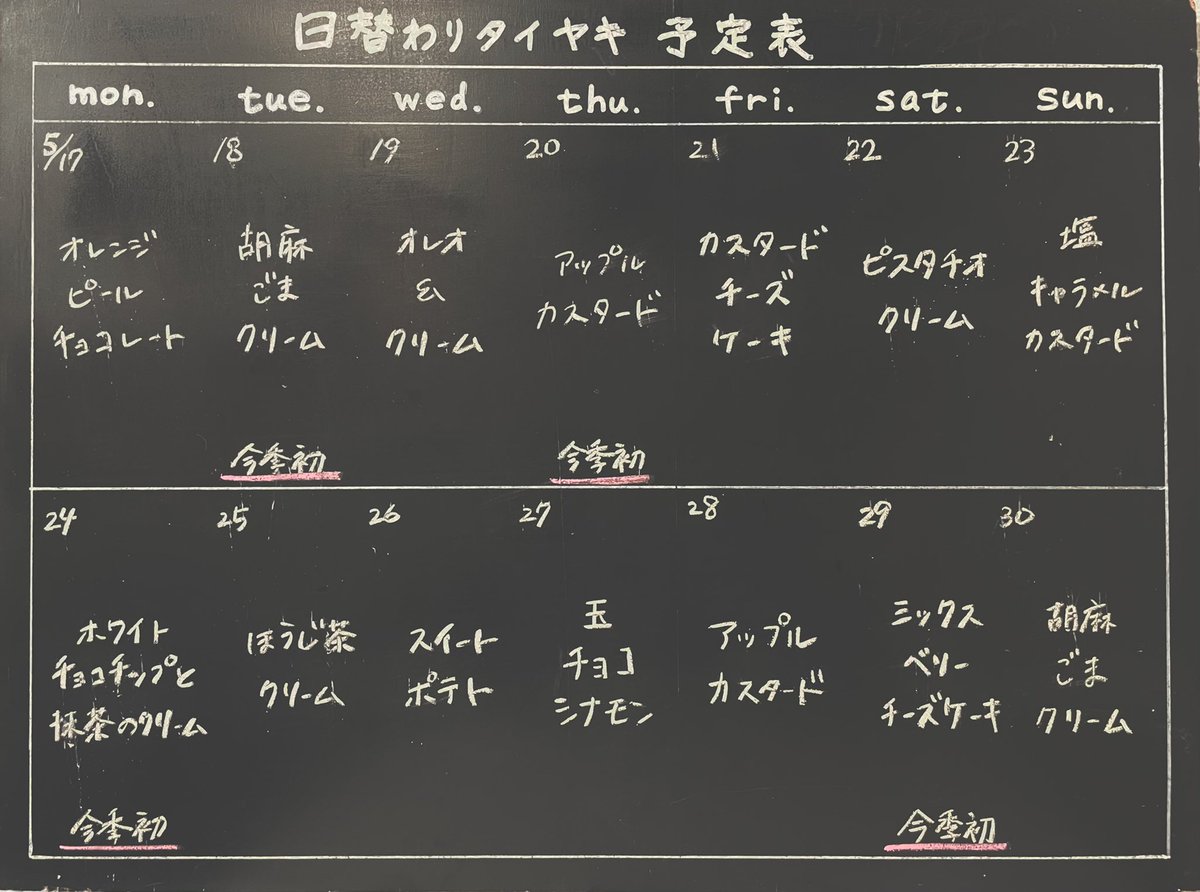 日替わりタイヤキ 予定表
mon. tue. wed. thu. fri. sat. sun.
5/17
オレンジ
ピール
チョコレート
18
胡麻
ごま
クリーム
今季初
19
オレオ
&
クリーム
20
アップル
カスタード
今季初
21
カスタード
チーズ
ケーキ
22
ピスタチオ
クリーム
23
塩
キャラメル
カスタード
24
ホワイト
チョコチップと
抹茶のクリーム
今季初
25
ほうじ茶
クリーム
26
スイート
ポテト
27
玉
チョコ
シナモン
28
アップル
カスタード
29
ミックス
ベリー
チーズケーキ
今季初
30
胡麻
ごま
クリーム